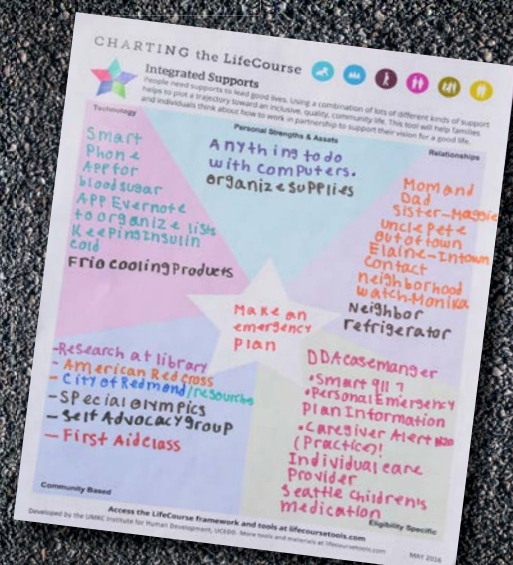 CHARTING the LifeCourse
Integrated Supports
People need supports to lead good lives. Using a combination of lots of different kinds of support
helps to plot a trajectory toward an inclusive, quality, community life. This tool will help families
and individuals think about how to work in partnership to support their vision for a good life.
Technology
Smart
Phone
App for
blood sugar
APP Evernote
to organize lists
Keeping Insulin
cold
Frio cooling Products
Personal Strengths & Assets
Anything to do
with computers.
organize supplies
Relationships
Mom and
Dad
Sister-Maggie
uncle Pete
out of town
Elaine-Intown
Contact
neighborhood
watch-Monika
Neighbor
refrigerator
Make an
emergency
plan
-Research at library
- American Red cross
- City of Redmond/resources
-Special Olympics
-Self Advocacy group
- First Aid class
Community Based
DDA casemanger
•Smart 911 ?
•Personal Emergency
Plan Information
•Caregiver Alert
(Practice)!
Individual care
Provider
Seattle Children's
medication
Eligibility Specific
Access the LifeCourse framework and tools at lifecoursetools.com
Developed by the UMKC Institute for Human Development, UCEDD. More tools and materials at lifecoursetools.com
MAY 2016